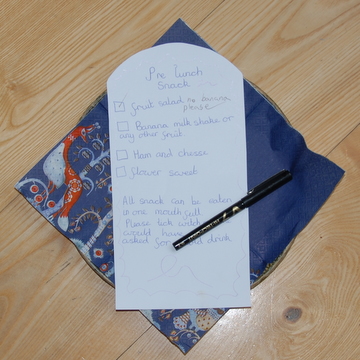 Pre Lunch
Snack
fruit salad no banana
please
Banana milkshake or
any other fruit
Ham and cheese
flower sweet
All snack can be eaten
in one mouthfull
Please tick witch
would
asked for and drink